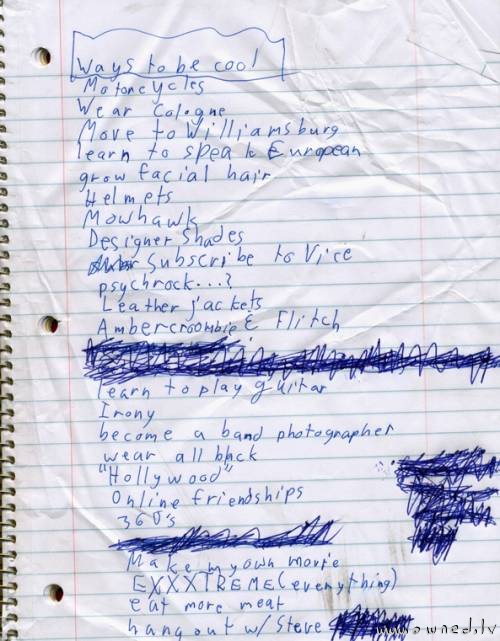 Ways to be cool
Motorcycles
Wear Cologne
Move to Williamsburg
learn to speak European
grow facial hair
Helmets
Mowhawk
Designer Shades
Subscribe to Vice
psychrock...?
Leather jackets
Ambercroombie & Flitch
learn to play guitar
Irony
become a band photographer
wear all black
"Hollywood"
Online friendships
360's
Make my own movie
EXXXTREME (everything)
eat more meat
hang out w/ Steve
www.owned.lv